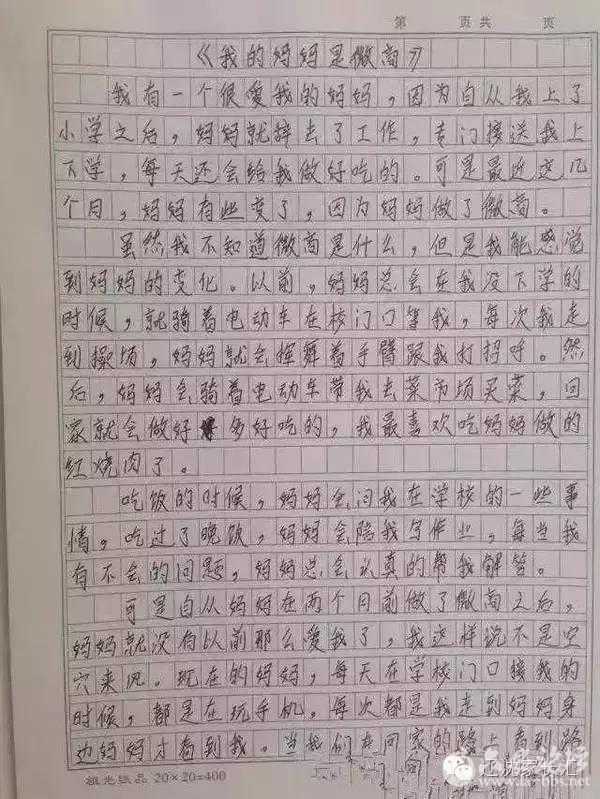 第 页共 页
《我的妈妈是微商》
我有一个很爱我的妈妈，因为自从我上了
小学之后，妈妈就辞去了工作，专门接送我上
下学，每天还会给我做好吃的。可是最近这几
个月，妈妈有些变了，因为妈妈做了微商。
虽然我不知道微商是什么，但是我能感觉
到妈妈的变化。以前，妈妈总会在我没下学的
时候，就骑着电动车在校门口等我，每次我走
到操场，妈妈就会挥舞着手臂跟我打招呼。然
后，妈妈会骑着电动车带我去菜市场买菜，回
家就会做好多好吃的，我最喜欢吃妈妈做的
红烧肉了。
吃饭的时候，妈妈会问我在学校的一些事
情，吃过了晚饭，妈妈会陪我写作业，每当我
有不会的问题，妈妈总会认真的帮我解答。
可是自从妈妈在两个月前做了微商之后，
妈妈就没有以前那么爱我了，我这样说不是空
穴来风。现在的妈妈，每天在学校门口接我的
时候，都是在玩手机，每次都是我走到妈妈身
边妈妈才看到我。当我们在回家的路上看到路
旭光纸品 20×20=400
www.la-bbs.net